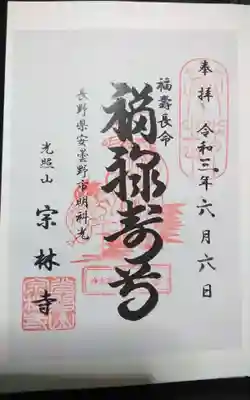 奉拝 令和三年六月六日
福壽長命
福禄寿尊
長野県安曇野市明科光
光照山 宗林寺